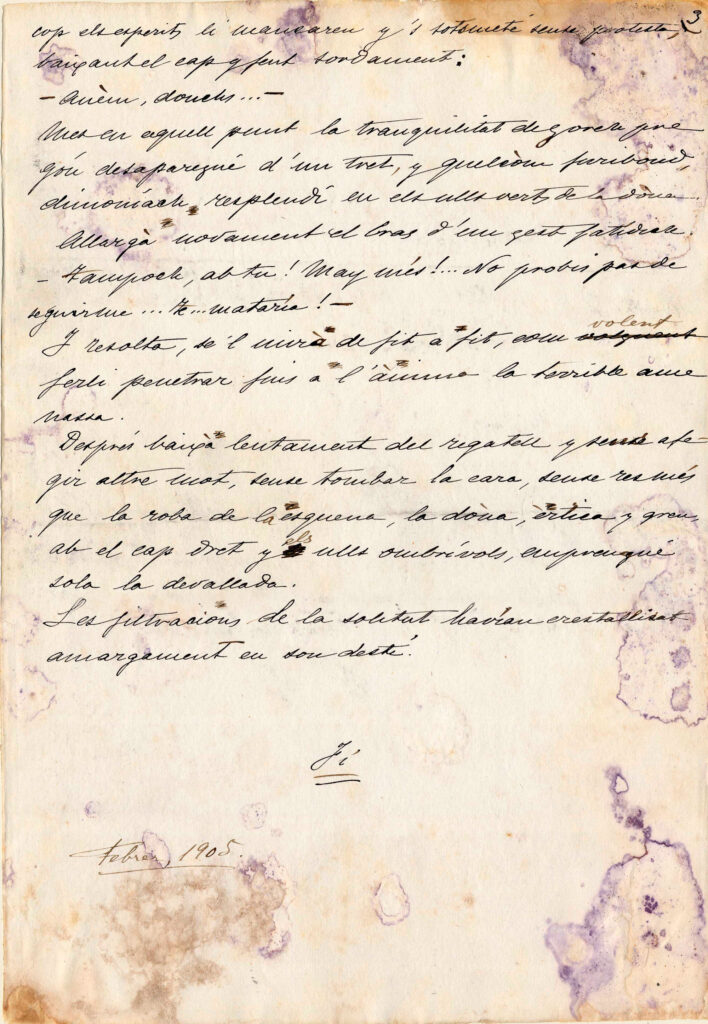 3
cop els esperits li mancaren y 's sotometé sense protesta,
baixant el cap y fent sordament:
- Anèm, donchs...-
Mes en aquell punt la tranquilitat de gorch pre
gón desaparegué d'un tret, y quelcòm furibond,
dimoniach, resplendí en els ulls verts de la dòna.
Allargà novament el bras d'un gest fatídich.
- Tampoch, ab tu! May més!... No probis pas de
seguirme... te... mataría! -
volent
I resolta, se'l mirà de fit a fit, com volguent
ferli penetrar fins a l'ànima la terrible ame
nassa.
Després baixà lentament del regatell y sense afe
gir altre mot, sense tombar la cara, sense res més
que la roba de la esquena, la dòna, èrtica y greu,
els
ab el cap dret y ulls ombrívols, emprengué
sola la devallada.
Les filtracions de la solitut havían crestallisat
amargament en son destí.
Fi
Febrer, 1905.